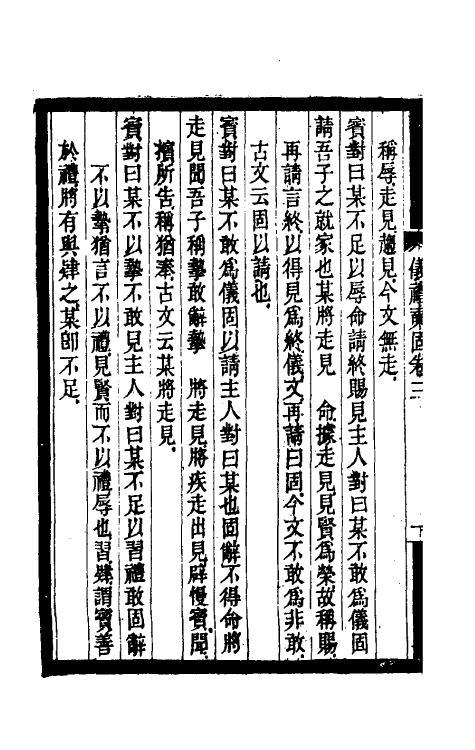 儀禮奭固卷三
稱辱走見趨見今文無走
賓對曰某不足以辱命請終賜見主人對曰某不敢爲儀固
請吾子之就家也某將走見　命據走見見賢爲榮故稱賜
再請言終以得見爲終儀文再請曰固今文不敢爲非敢
古文云固以請也
賓對曰某不敢爲儀固以請主人對曰某也固辭不得命將
走見聞吾子稱摯敢辭摯　將走見將疾走出見辟慢賓聞
擯所告稱猶奉古文云某將走見
賓對曰某不以摯不敢見主人對曰某不足以習禮敢固辭
不以摯猶言不以禮見賢而不以禮辱也習肄謂賓善
於禮將有與肄之某卽不足